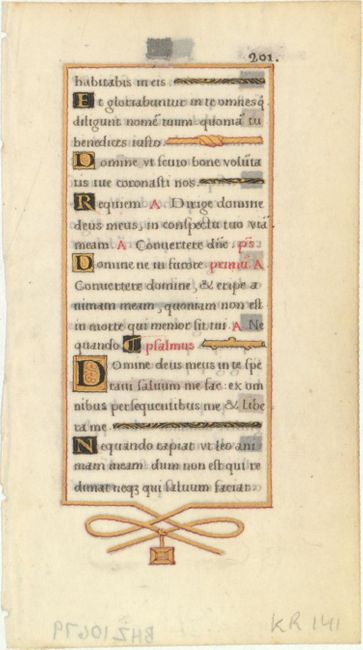 201.
habitabis in eis.
Et gloriabuntur in te omnes q̃
diligunt nomẽ tuum quoniã tu
benedices iusto.
Domine vt scuto bone volũta
tis tue coronasti nos.
Requiem A Dirige domine
deus meus, in conspectu tuo viã
meam A Conuertere dñe ps.
Domine ne in furore primũ A
Conuertere domine, & eripe a
nimam meam, quoniam non est
in morte qui memor sit tui A Ne
quando psalmus
Domine deus meus in te spe
raui saluum me fac ex om
nibus persequentibus me & libe
ra me.
Nequando rapiat vt leo ani
mam meam dum non est qui re
dimat neqꝫ qui saluum faciat.
KR 141
BHZ10679